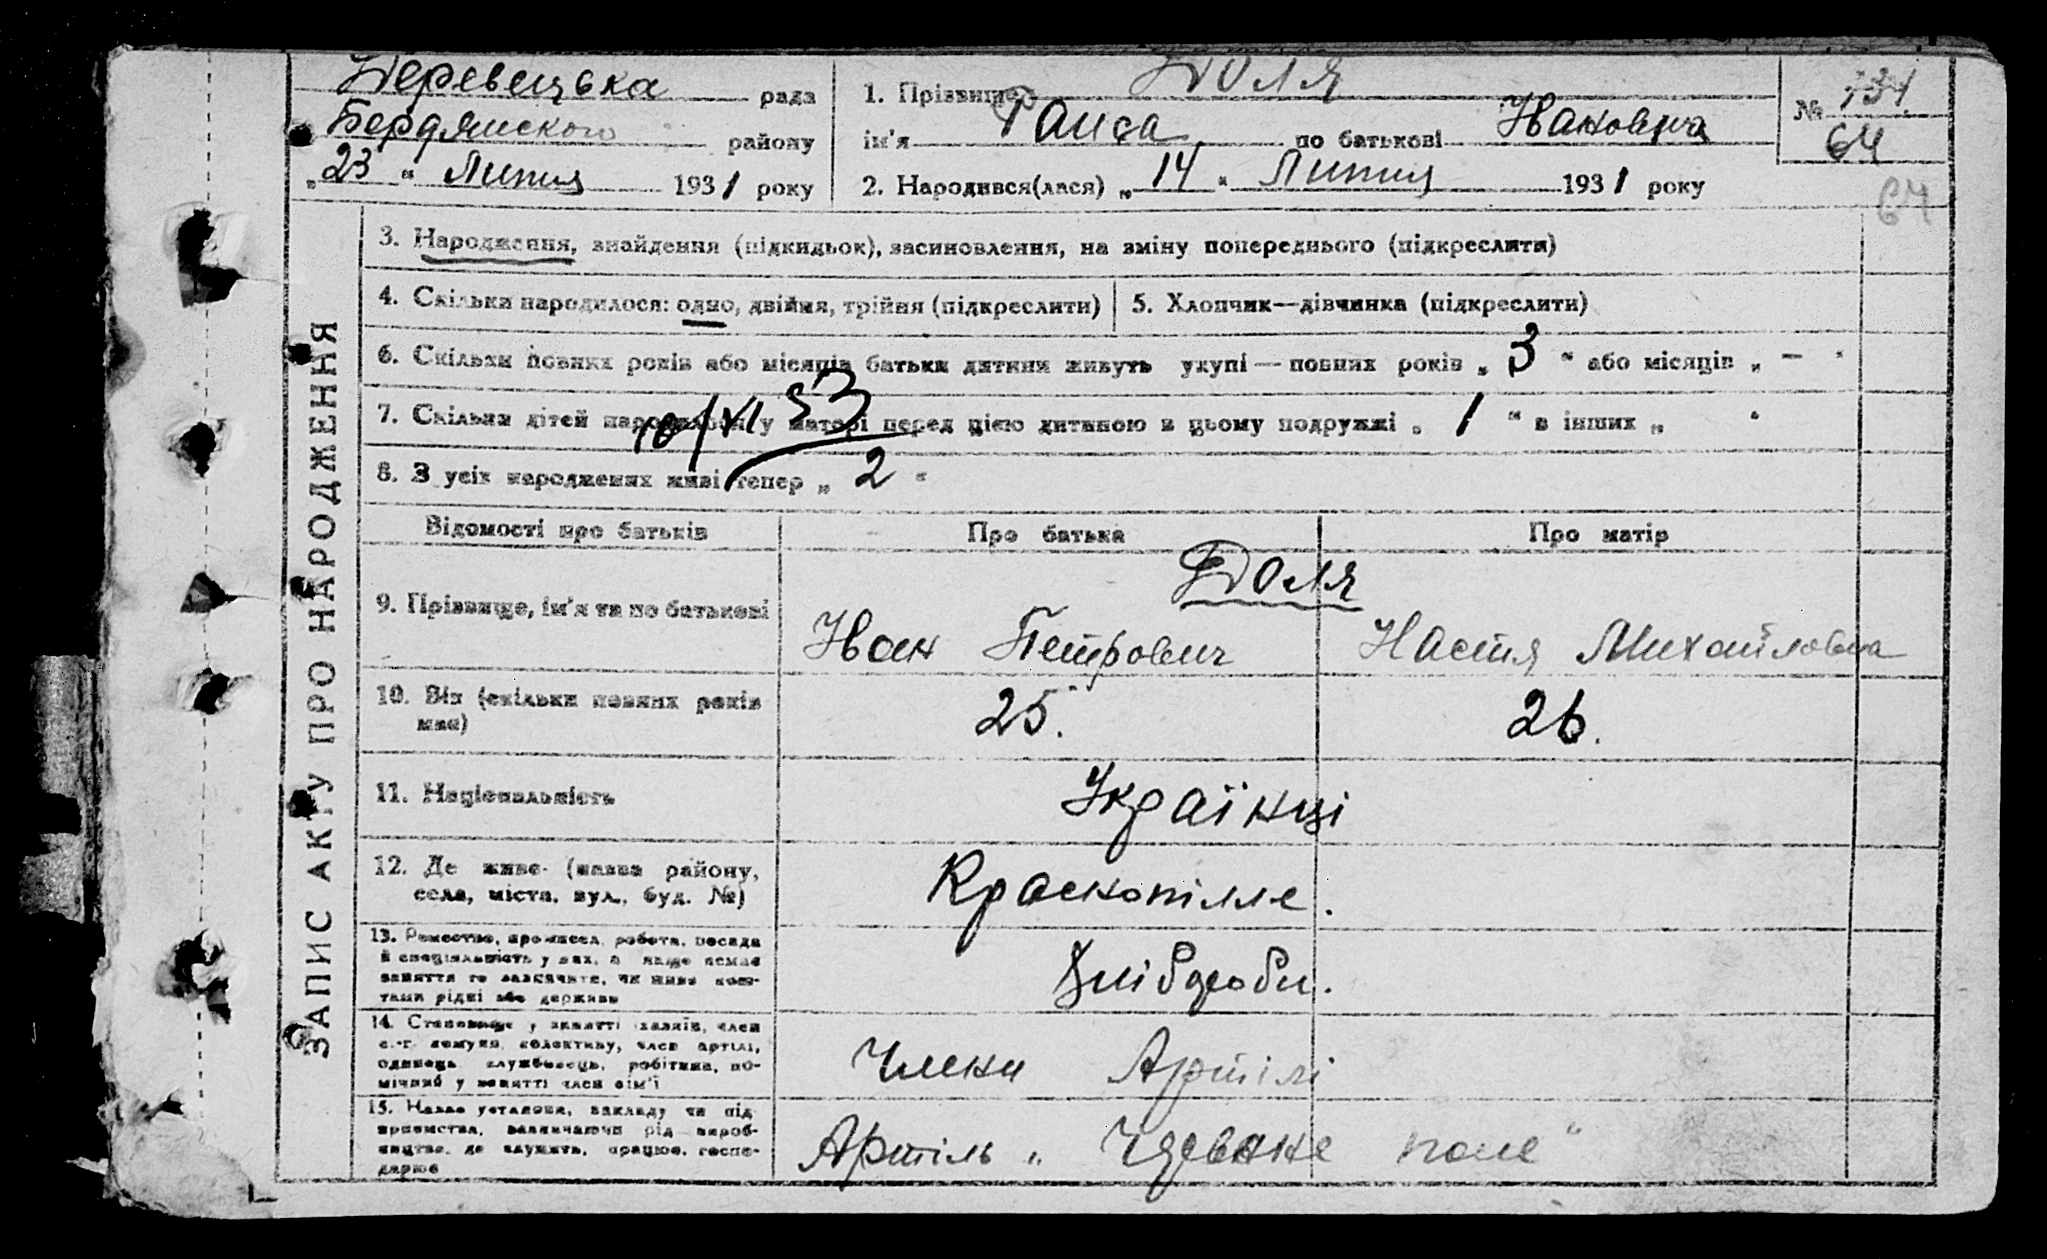 Деревецька рада
Бердянського району
„ 23 “ Липня 1931 року
1. Прізвище Доля
ім'я Раиса по батькові Ивановна
2. Народився(лася) „ 14 “ Липня 1931 року
№ 134
64
64
ЗАПИС АКТУ ПРО НАРОДЖЕННЯ
3. Народження, знайдення (підкидьок), засиновлення, на зміну попереднього (підкреслити)
4. Скільки народилося: одно, двійня, трійня (підкреслити)
5. Хлопчик—дівчинка (підкреслити)
6. Скільки повних років або місяців батьки дитини живуть укупі — повних років „ 3 “ або місяців „ — “
7. Скільки дітей народилося у матері перед цією дитиною в цьому подружжі „ 1 “ в інших „ “
10/VI 33
8. З усіх народжених живі тепер „ 2 “
Відомості про батьків
Про батька
Про матір
9. Прізвище, ім'я та по батькові
Доля
Иван Петрович
Настя Михайловна
10. Вік (скільки повних років має)
25.
26.
11. Національність
Українці
12. Де живе (назва району,
села, міста, вул., буд. №)
Краснопілле.
13. Ремество, промисел, робота, посада
й спеціяльність у них, а якщо немає
заняття то зазначити, чи живе кош-
тами рідні або держави
Хлібороби.
14. Становище у занятті: хазяїн, член
с.-г. комуни, колективу, член артілі,
одинець, службовець, робітник, по-
мічний у занятті член сім'ї
Члени Артілі
15. Назва установи, закладу чи під-
приємства, зазначаючи рід вироб-
ництва, де служить, працює, госпо-
дарює
Артіль „ Червоне поле “